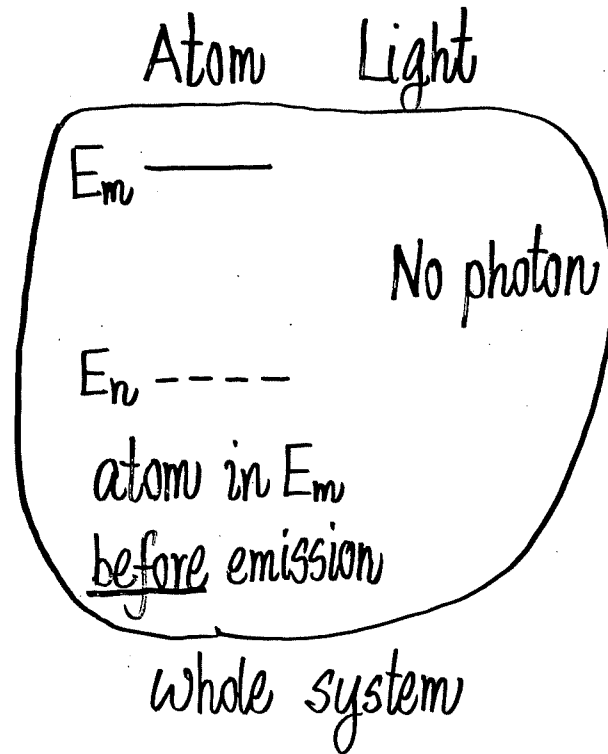 Atom Light
Em
No photon
En
atom in Em
before emission
whole system